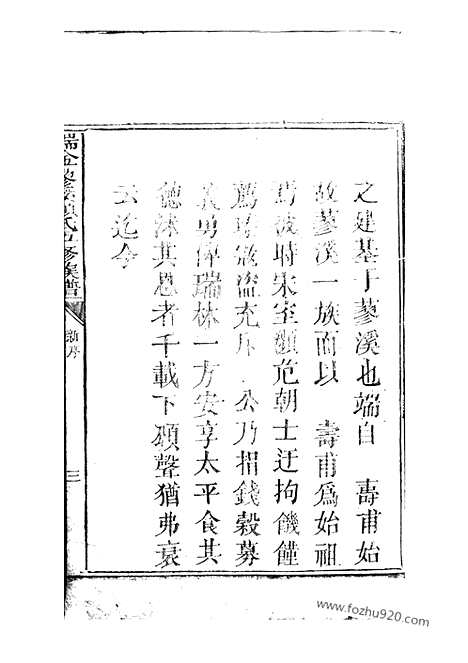 之建基于蓼溪也端自 壽甫始
故蓼溪一族而以 壽甫為始祖
焉彼時宋室顚危朝士迂拘饑饉
薦臻寇盜充斥 公乃捐錢穀募
義勇俾瑞林一方安享太平食其
德沐其恩者千載下頌聲猶弗衰
云迄今
瑞金蓼溪 氏五修族譜
新序
三
www.fozhu920.com